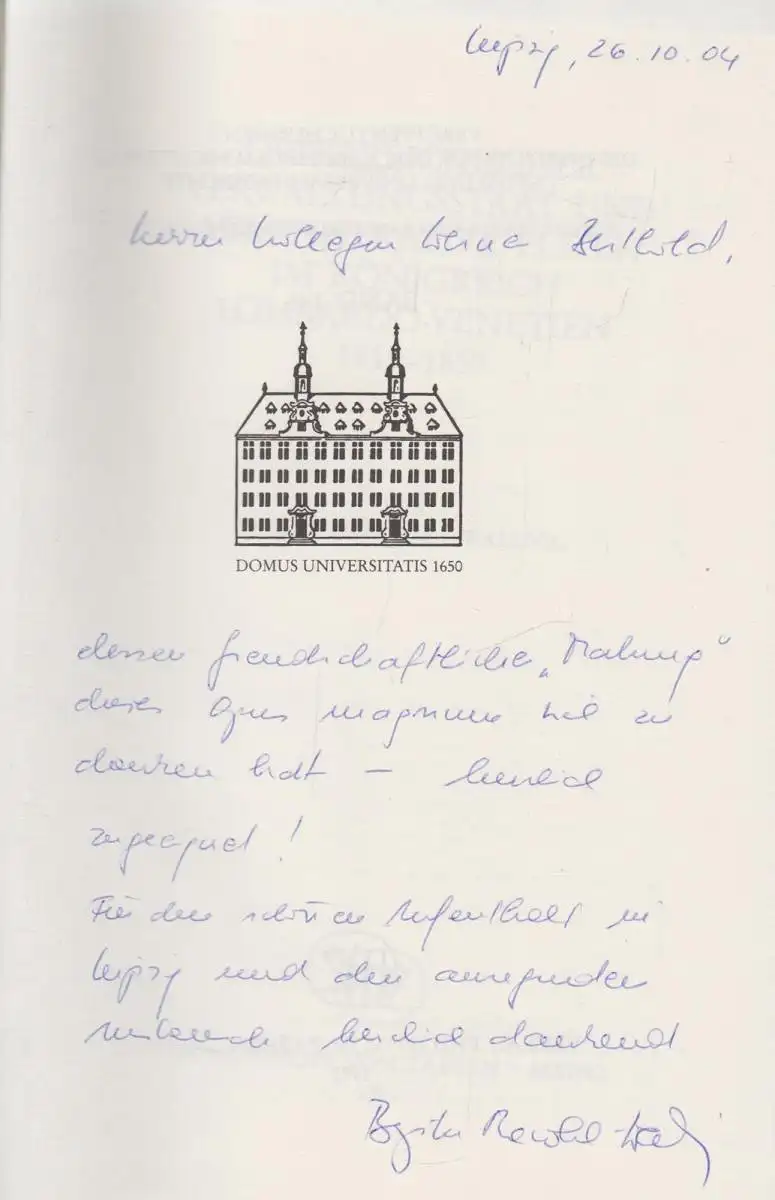 Leipzig, 26.10.04
Herrn Kollegen Werner Berthold,
DOMUS UNIVERSITATIS 1650
dessen freundschaftliche „Mahnung"
dieses Opus magnum viel zu
danken hat — herzlich
zugeeignet!
Für den schönen Aufenthalt in
Leipzig und den anregenden
herzlich dankend
Brigitte
IM KÖNIGREICH
LOMBARDO-VENETIEN